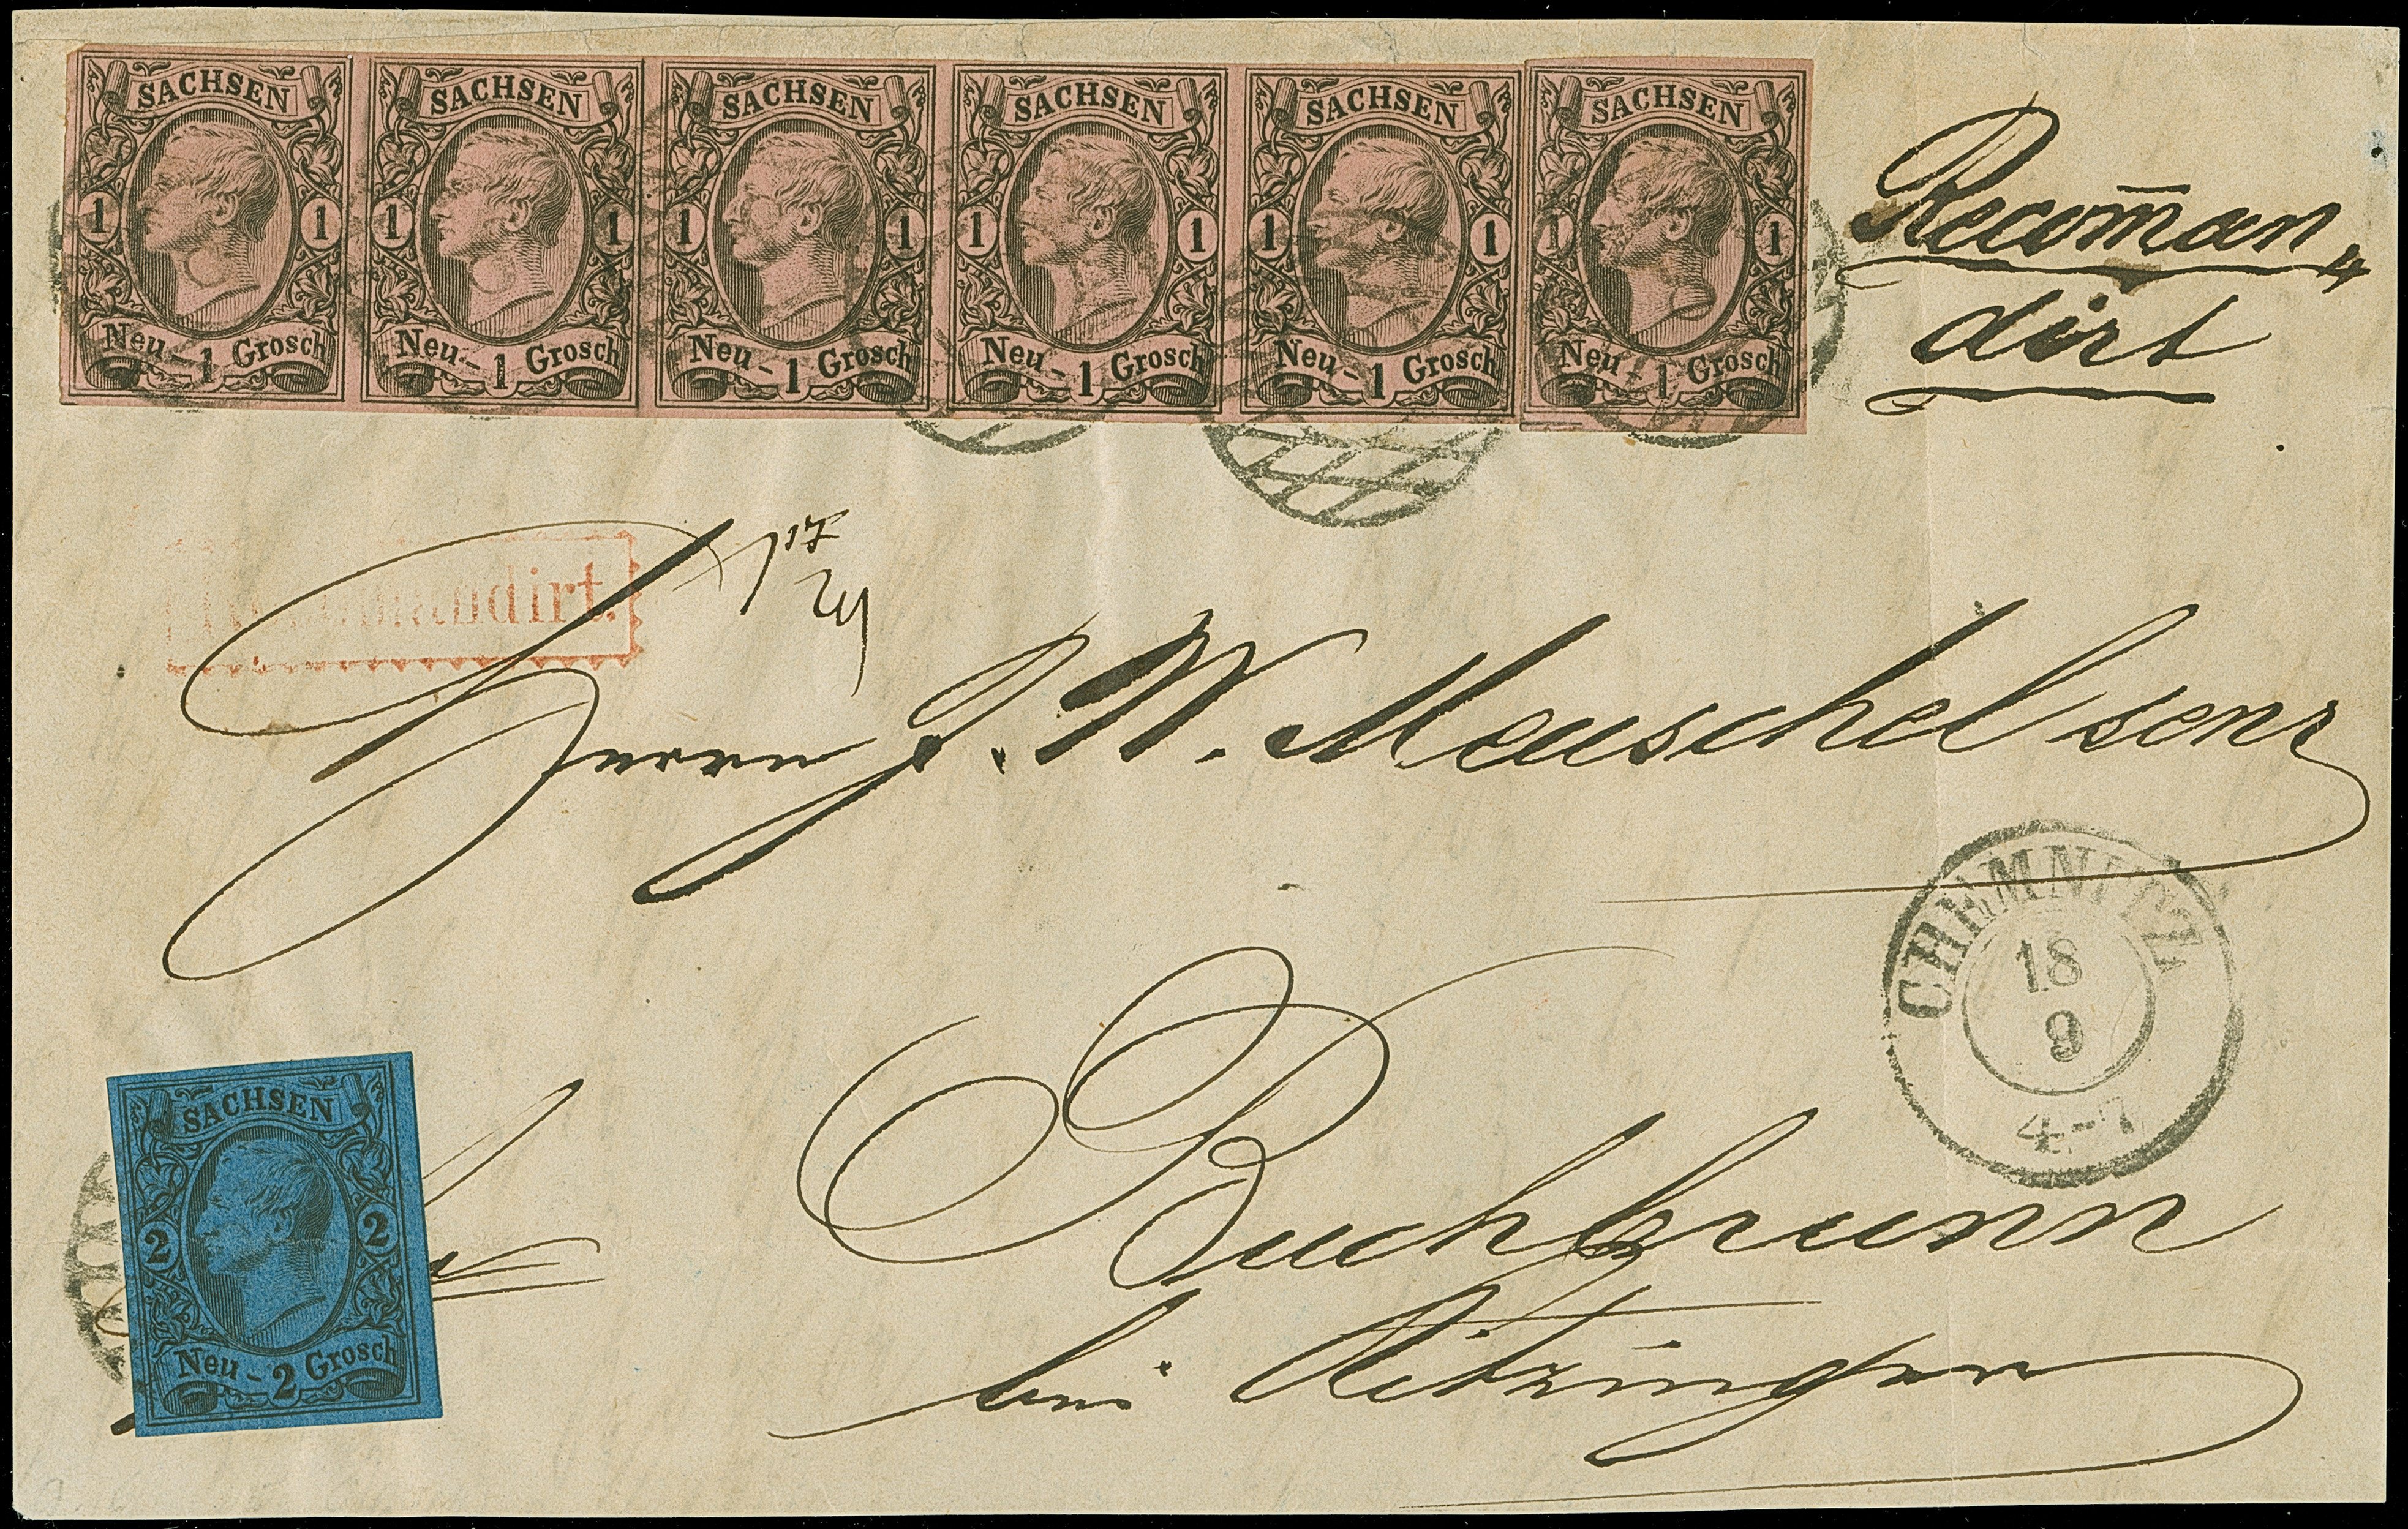 SACHSEN
1 1
Neu-1 Grosch
SACHSEN
1 1
Neu-1 Grosch
SACHSEN
1 1
Neu-1 Grosch
SACHSEN
1 1
Neu-1 Grosch
SACHSEN
1 1
Neu-1 Grosch
SACHSEN
1 1
Neu-1 Grosch
Recom̄an„
dirt
Recommandirt.
Herrn J. W. Meuschel senr
CHEMNITZ
18
9
4-7
Buchbrunn
bei Kitzingen
SACHSEN
2 2
Neu-2 Grosch